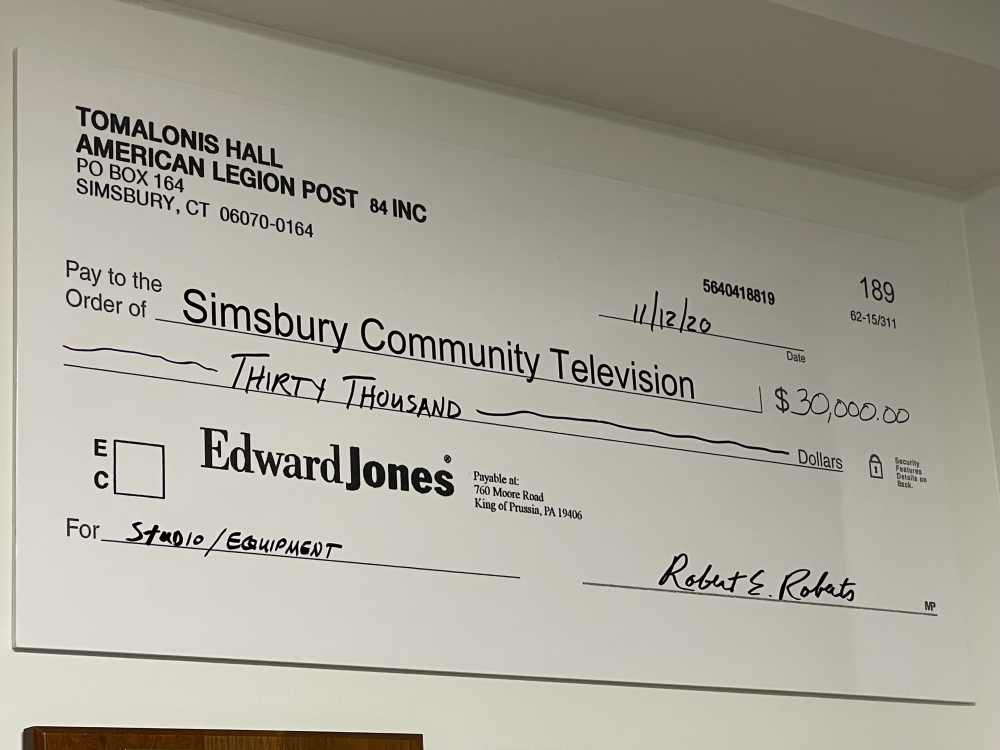 TOMALONIS HALL
AMERICAN LEGION POST 84 INC
PO BOX 164
SIMSBURY, CT 06070-0164
5640418819
189
62-15/311
11/12/20
Date
Pay to the
Order of
Simsbury Community Television
$30,000.00
THIRTY THOUSAND
Dollars
Security
Features
Details on
Back.
E
C
Edward Jones®
Payable at:
760 Moore Road
King of Prussia, PA 19406
For STUDIO/EQUIPMENT
Robert E. Roberts
MP